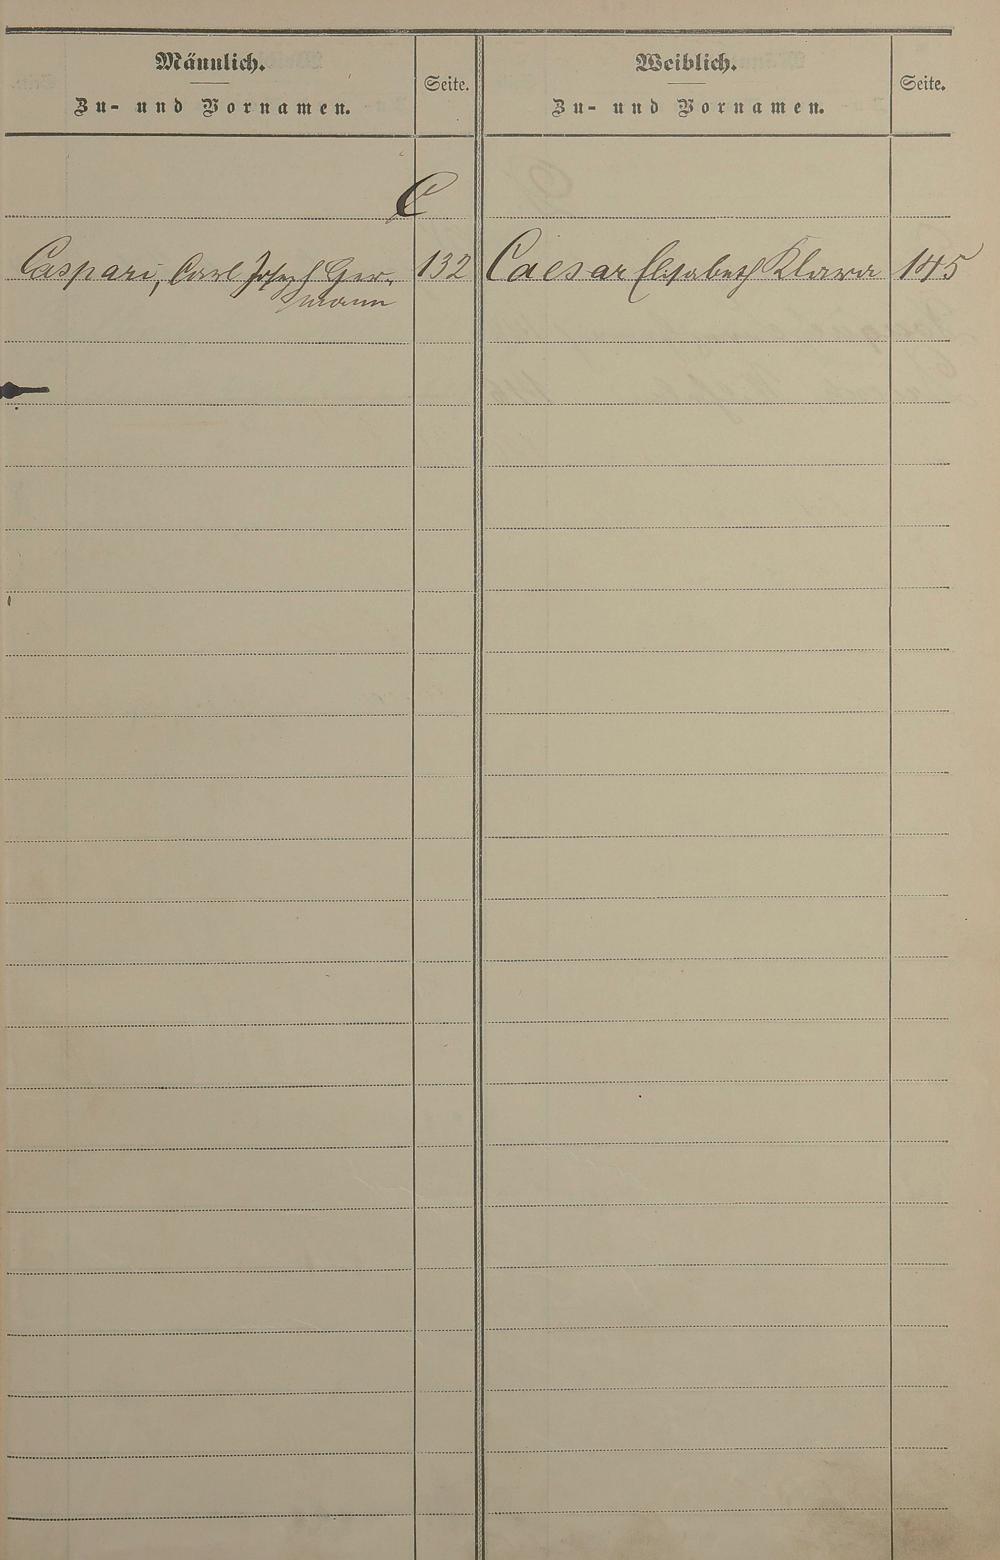 Männlich.
Zu- und Vornamen.
Seite.
Weiblich.
Zu- und Vornamen.
Seite.
C
Caspari, Carl Joseph Ger-
mann
132
Caesar Elisabeth Klara
145